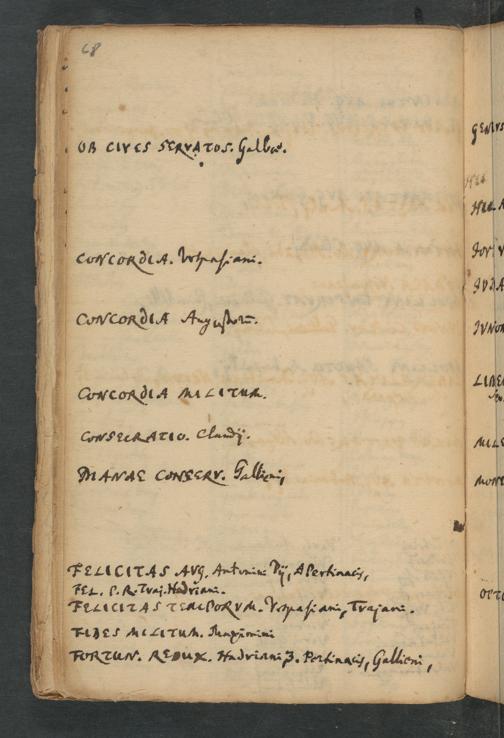 68
OB CIVES SERVATOS. Galbæ.
CONCORDIA. Vespasiani.
CONCORDIA Augustorum.
CONCORDIA MILITUM.
CONSECRATIO. Claudij.
DIANAE CONSERV. Gallieni,
FELICITAS AVG. Antonini Pij, Pertinacis,
FEL. P. R. Traj. Hadriani.
FELICITAS TEMPORVM. Vespasiani, Trajani.
FIDES MILITUM. Maximini
FORTUN. REDUX. Hadriani 3. Pertinacis, Gallieni,
GENIUS
HER. A
JOVI V
JUDA
JUNON
MILE
MONE